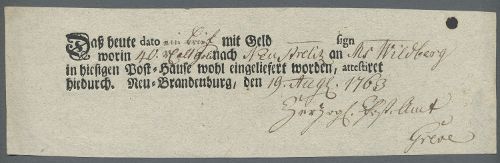 Daß heute dato ein brief mit Geld sign
worin 40. Thaler nach Neu Strelitz an Mr Wildberg
in hiesigen Post-Hause wohl eingeliefert worden, attestiret
hiedurch. Neu-Brandenburg, den 19. Augl. 1763
Herzogl. Post-Amt
Greve